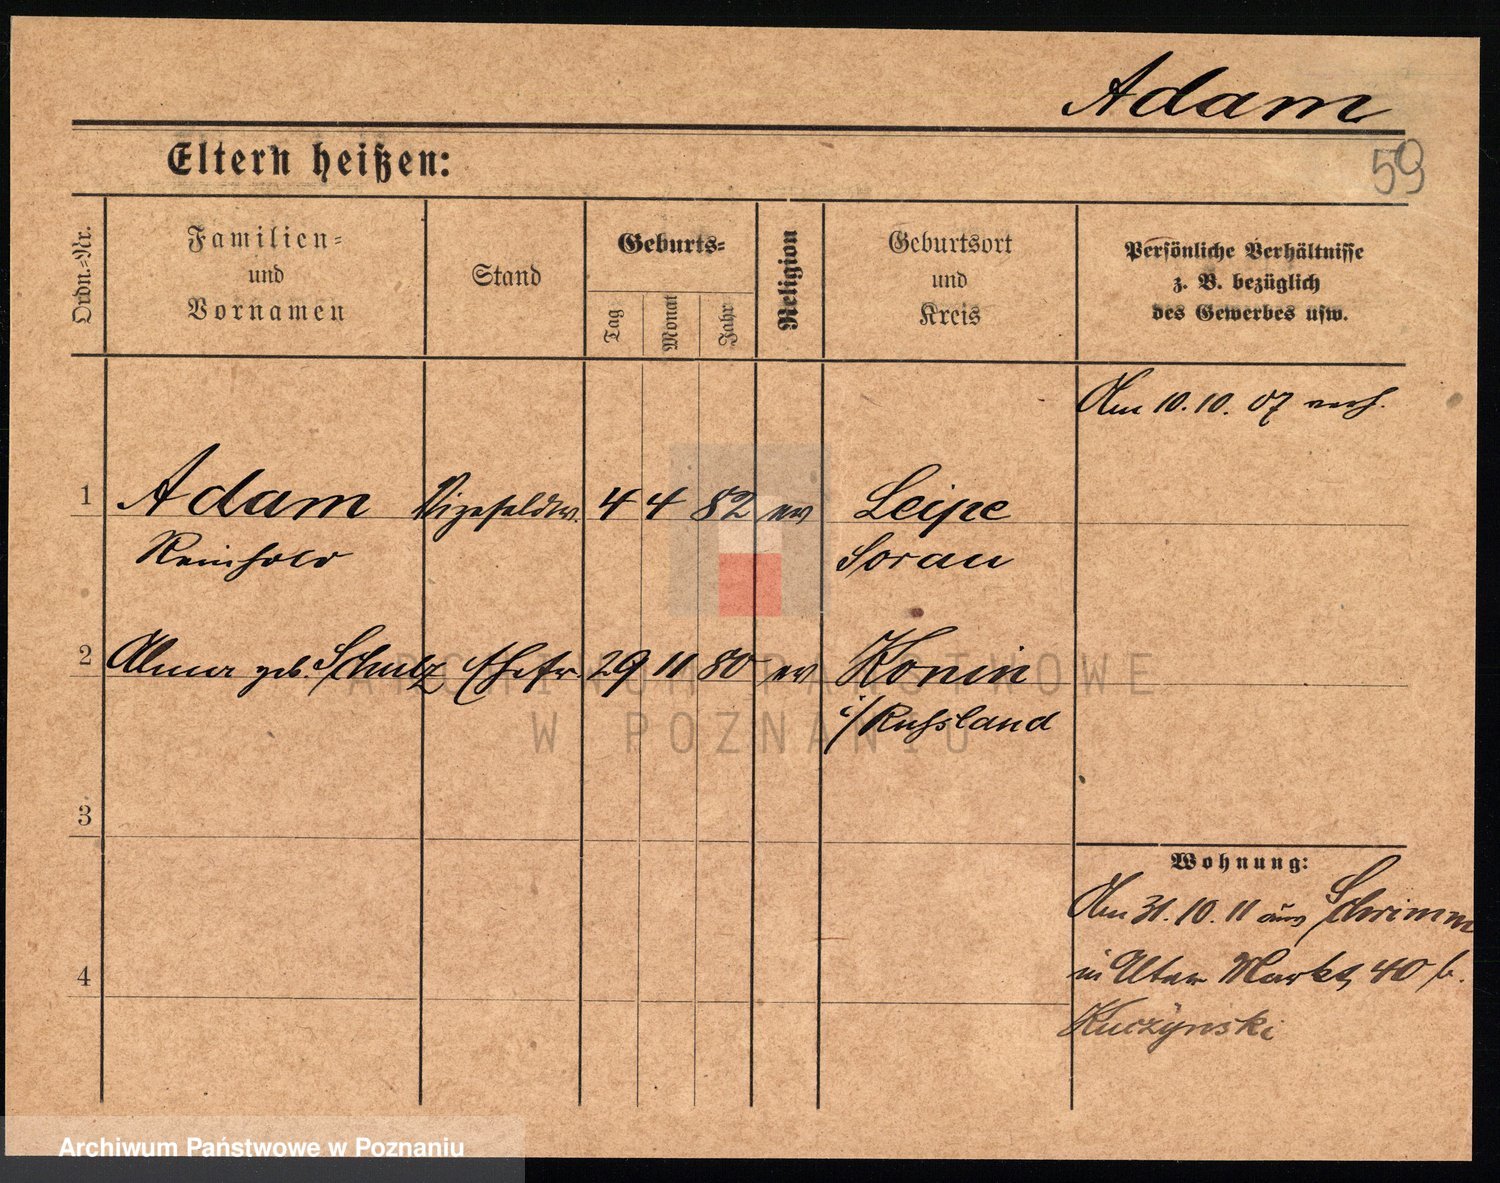 Adam
59
Eltern heißen:
Ordn.-Nr.
Familien-
und
Vornamen
Stand
Geburts-
Tag
Monat
Jahr
Religion
Geburtsort
und
Kreis
Persönliche Verhältnisse
z. B. bezüglich
des Gewerbes usw.
Am 10.10.07 verh.
1 Adam Vizefeldw. 4 4 82 ev Leipe
Reinhold Sorau
2 Alma geb. Schulz Ehefr. 29 11 80 ev Konin
i/Russland
3
Wohnung:
Am 31.10.11 aus Schrimm
4
in Alter Markt 40 b.
Kuczynski
ARCHIWUM PAŃSTWOWE
W POZNANIU
Archiwum Państwowe w Poznaniu